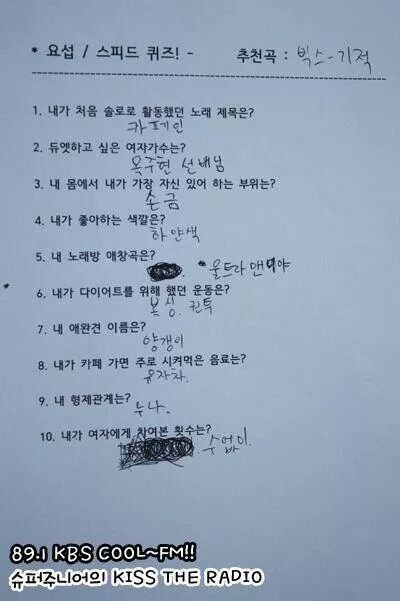 * 요섭 / 스피드 퀴즈! - 추천곡 : 빅스-기적
1. 내가 처음 솔로로 활동했던 노래 제목은?
카페인
2. 듀엣하고 싶은 여자가수는?
옥주현 선배님
3. 내 몸에서 내가 가장 자신 있어 하는 부위는?
손금
4. 내가 좋아하는 색깔은?
하얀색
5. 내 노래방 애창곡은?
울트라맨이야
6. 내가 다이어트를 위해 했던 운동은?
복싱. 권투
7. 내 애완견 이름은?
양갱이
8. 내가 카페 가면 주로 시켜먹은 음료는?
유자차.
9. 내 형제관계는?
누나.
10. 내가 여자에게 차여본 횟수는?
수없이.
89.1 KBS COOL~FM!!
슈퍼주니어의 KISS THE RADIO